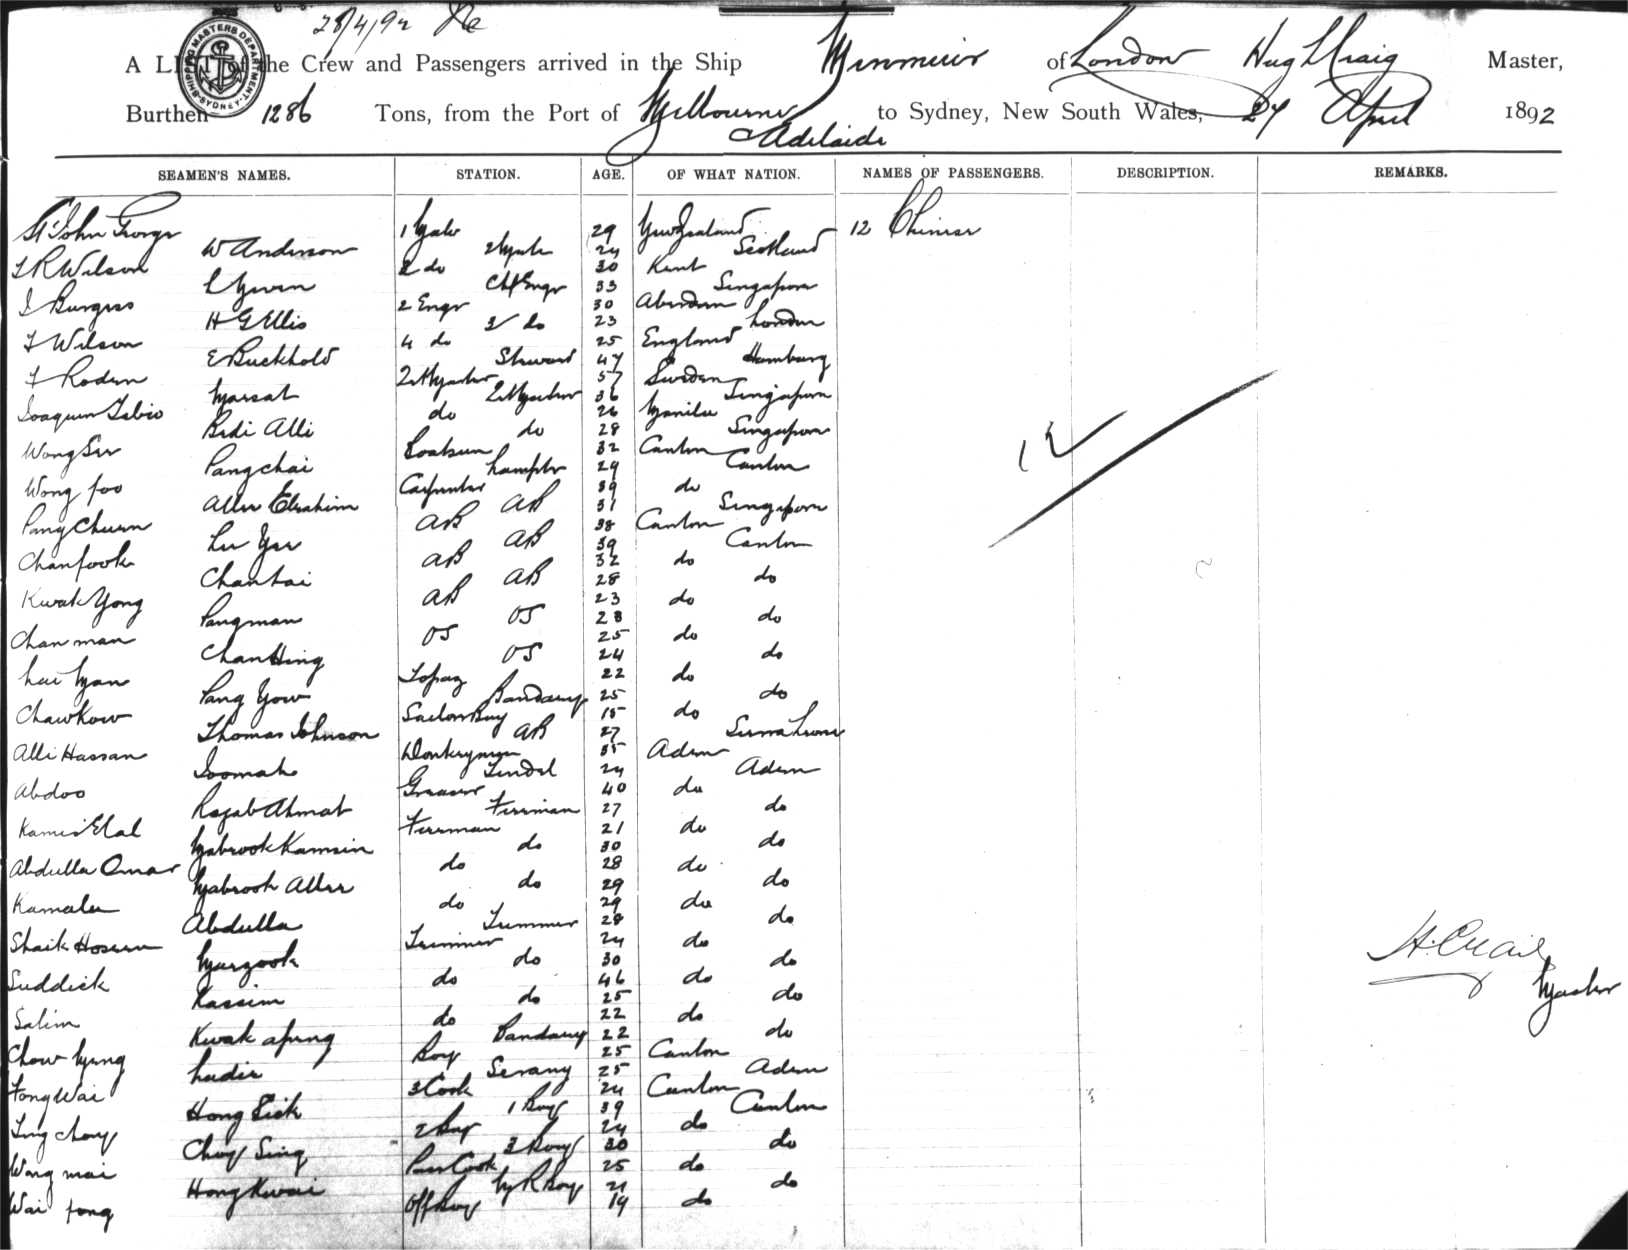 28/4/92
SHIPPING MASTERS DEPARTMENT SYDNEY
A LIST of the Crew and Passengers arrived in the Ship Menmuir of London Hugh Craig Master,
Burthen 1286 Tons, from the Port of Melbourne to Sydney, New South Wales, 27 April 1892
Adelaide
SEAMEN'S NAMES. STATION. AGE. OF WHAT NATION. NAMES OF PASSENGERS. DESCRIPTION. REMARKS.
St John George 1 Mate 29 New Zealand 12 Chinese
W Anderson 2 Mate 24 Scotland
T R Wilson 3 do 30 Kent
Chf Engr 33 Singapore
J Burgess 2 Engr 30 Aberdeen
H G Ellis 3 do 23 London
T Wilson 4 do 25 England
E Buckhold Steward 47 Hamburg
F Roden 57 Sweden
Marsat 36 Singapore
Joaquim do 26 Manila
Bedi Alli do 28 Singapore
Wong See Boatsun 32 Canton
Pangchai Lamptr 29 Canton
Wong foo Carpenter 39 do
Allee Ebrahim AB 31 Singapore
Pang Chuen AB 38 Canton
Lee Yee AB 39 Canton
Chanfook AB 32 do
Chantai AB 28 do
Kwak Yong AB 23 do
Pangman OS 28 do
Chan man OS 25 do
Chan Hing OS 24 do
Lui Man Topaz 22 do
Pang Yow 25 do
Chawkow Sailors Boy 15 do
Thomas Johnson AB 27 Sierra Leone
Alli Hassan Donkeyman 35 Aden
Joomah Tindal 24 Aden
Abdoo Greaser 40 do
Rajab Ahmat Fireman 27 do
Kamis Elal Fireman 21 do
Mabrook Kamsin do 30 do
Abdulla Omar do 28 do
Mabrook Allee do 29 do
Kamalee do 29 do
Abdulla Trimmer 28 do
Shaik Hoseen Trimmer 24 do
Murzook do 30 do
Suddick do 46 do
Kassim do 25 do
Salim do 22 do
Kwak apung 22 do
Chow Myng Boy 25 Canton
Serang 25 Aden
Fong Wai 3 Cook 24 Canton
Hong Sick 1 Boy 39 Canton
Ting Choy 2 Boy 24 do
Choy Sing 3 Boy 30 do
Wong mai Pass Cook 25 do
Hong Kwai M R Boy 21 do
Wai fong Off Boy 19 do
12
H. Craig
Master